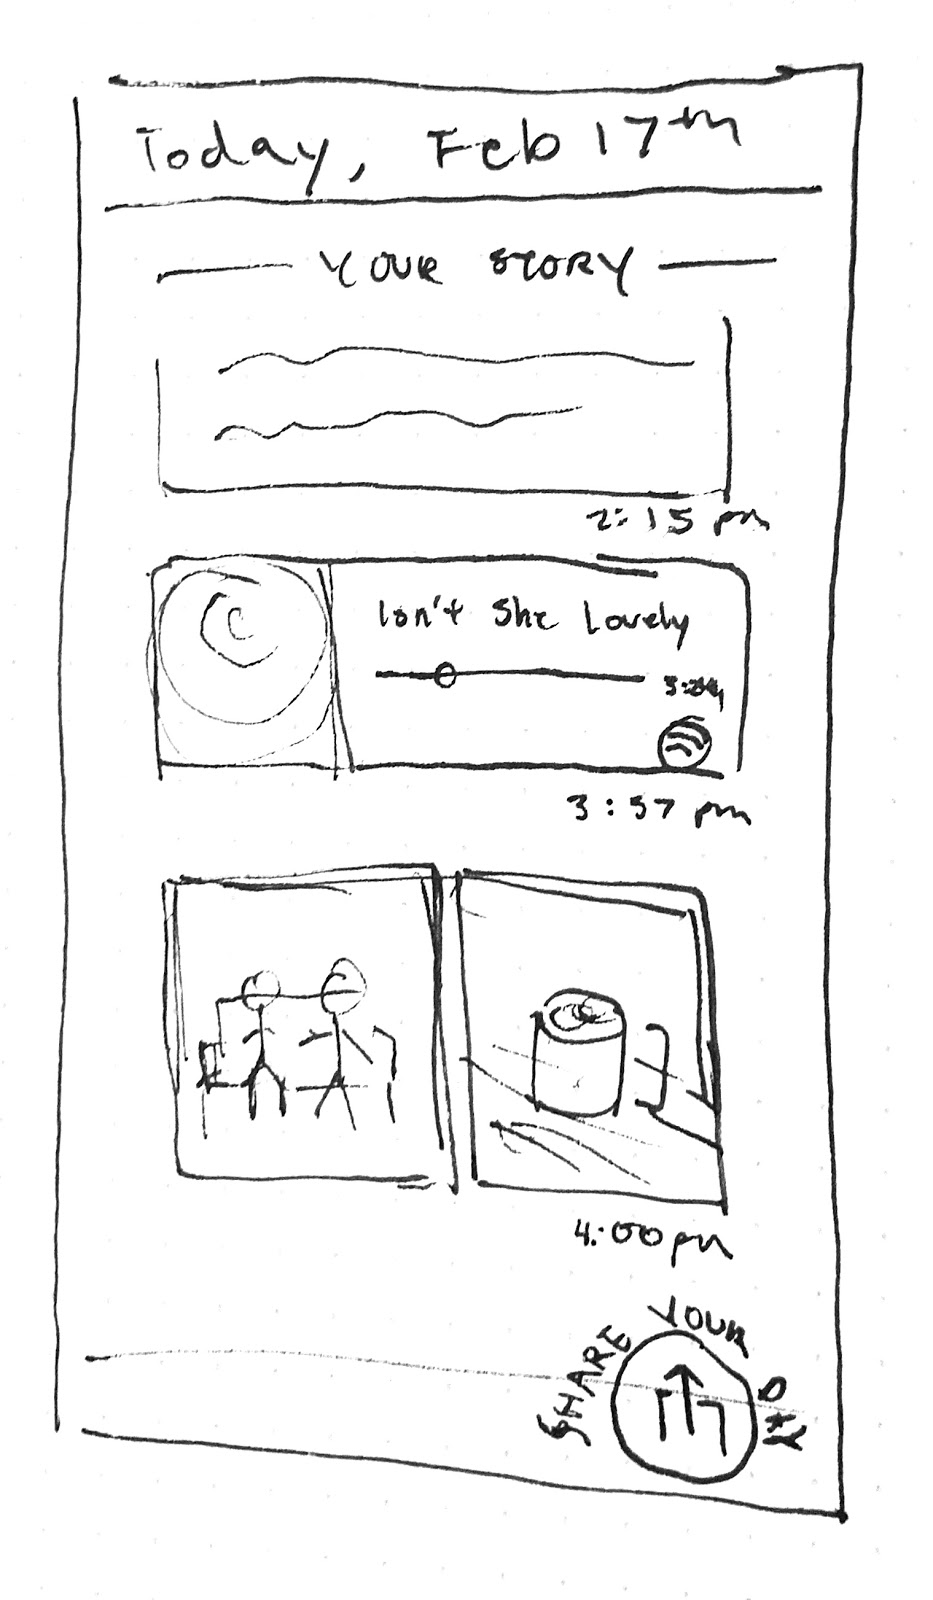 Today, Feb 17th
YOUR STORY
2:15 pm
Isn't She Lovely
3:57 pm
4:00 pm
SHARE YOUR DAY